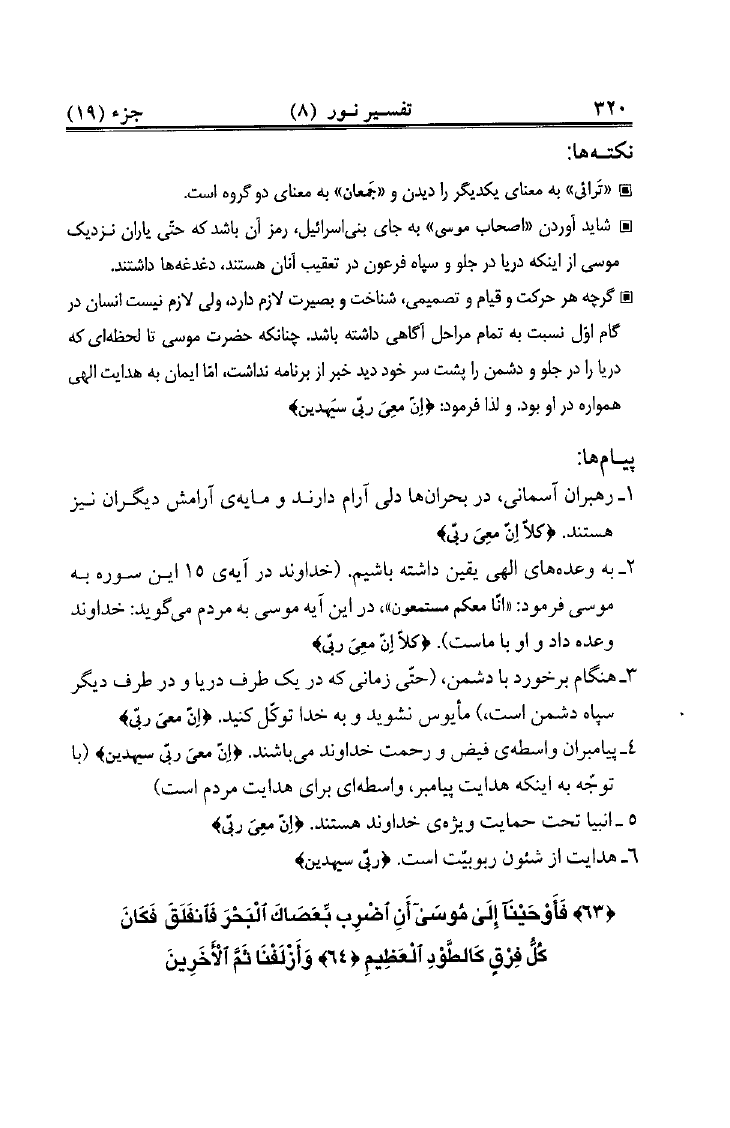 ۳۲۰ تفسیر نور (۸) جزء (۱۹)
نکته‌ها:
▣ «تَرائَی» به معنای یکدیگر را دیدن و «جَمعان» به معنای دو گروه است.
▣ شاید آوردن «اصحاب موسی» به جای بنی‌اسرائیل، رمز آن باشد که حتّی یاران نزدیک
موسی از اینکه دریا در جلو و سپاه فرعون در تعقیب آنان هستند، دغدغه‌ها داشتند.
▣ گرچه هر حرکت و قیام و تصمیمی، شناخت و بصیرت لازم دارد، ولی لازم نیست انسان در
گام اوّل نسبت به تمام مراحل آگاهی داشته باشد. چنانکه حضرت موسی تا لحظه‌ای که
دریا را در جلو و دشمن را پشت سر خود دید خبر از برنامه نداشت، امّا ایمان به هدایت الهی
همواره در او بود. و لذا فرمود: ﴿اِنّ معِیَ ربّی سیَهدین﴾
پیام‌ها:
۱ـ رهبران آسمانی، در بحران‌ها دلی آرام دارند و مایه‌ی آرامش دیگران نیز
هستند. ﴿کلاّ اِنّ معِیَ ربّی﴾
۲ـ به وعده‌های الهی یقین داشته باشیم. (خداوند در آیه‌ی ۱۵ این سوره به
موسی فرمود: «انّا معکم مستمعون»، در این آیه موسی به مردم می‌گوید: خداوند
وعده داد و او با ماست). ﴿کلاّ اِنّ معِیَ ربّی﴾
۳ـ هنگام برخورد با دشمن، (حتّی زمانی که در یک طرف دریا و در طرف دیگر
سپاه دشمن است،) مأیوس نشوید و به خدا توکّل کنید. ﴿اِنّ معِیَ ربّی﴾
٤ـ پیامبران واسطه‌ی فیض و رحمت خداوند می‌باشند. ﴿اِنّ معِیَ ربّی سیهدین﴾ (با
توجّه به اینکه هدایت پیامبر، واسطه‌ای برای هدایت مردم است)
٥ ـ انبیا تحت حمایت ویژه‌ی خداوند هستند. ﴿اِنّ معِیَ ربّی﴾
٦ـ هدایت از شئون ربوبیّت است. ﴿ربّی سیهدین﴾
﴿٦٣﴾ فَأَوْحَيْنَآ إِلَىٰ مُوسَىٰٓ أَنِ ٱضْرِب بِّعَصَاكَ ٱلْبَحْرَ فَٱنفَلَقَ فَكَانَ
كُلُّ فِرْقٍ كَالطَّوْدِ ٱلْعَظِيمِ ﴿٦٤﴾ وَأَزْلَفْنَا ثَمَّ ٱلْأَخَرِينَ